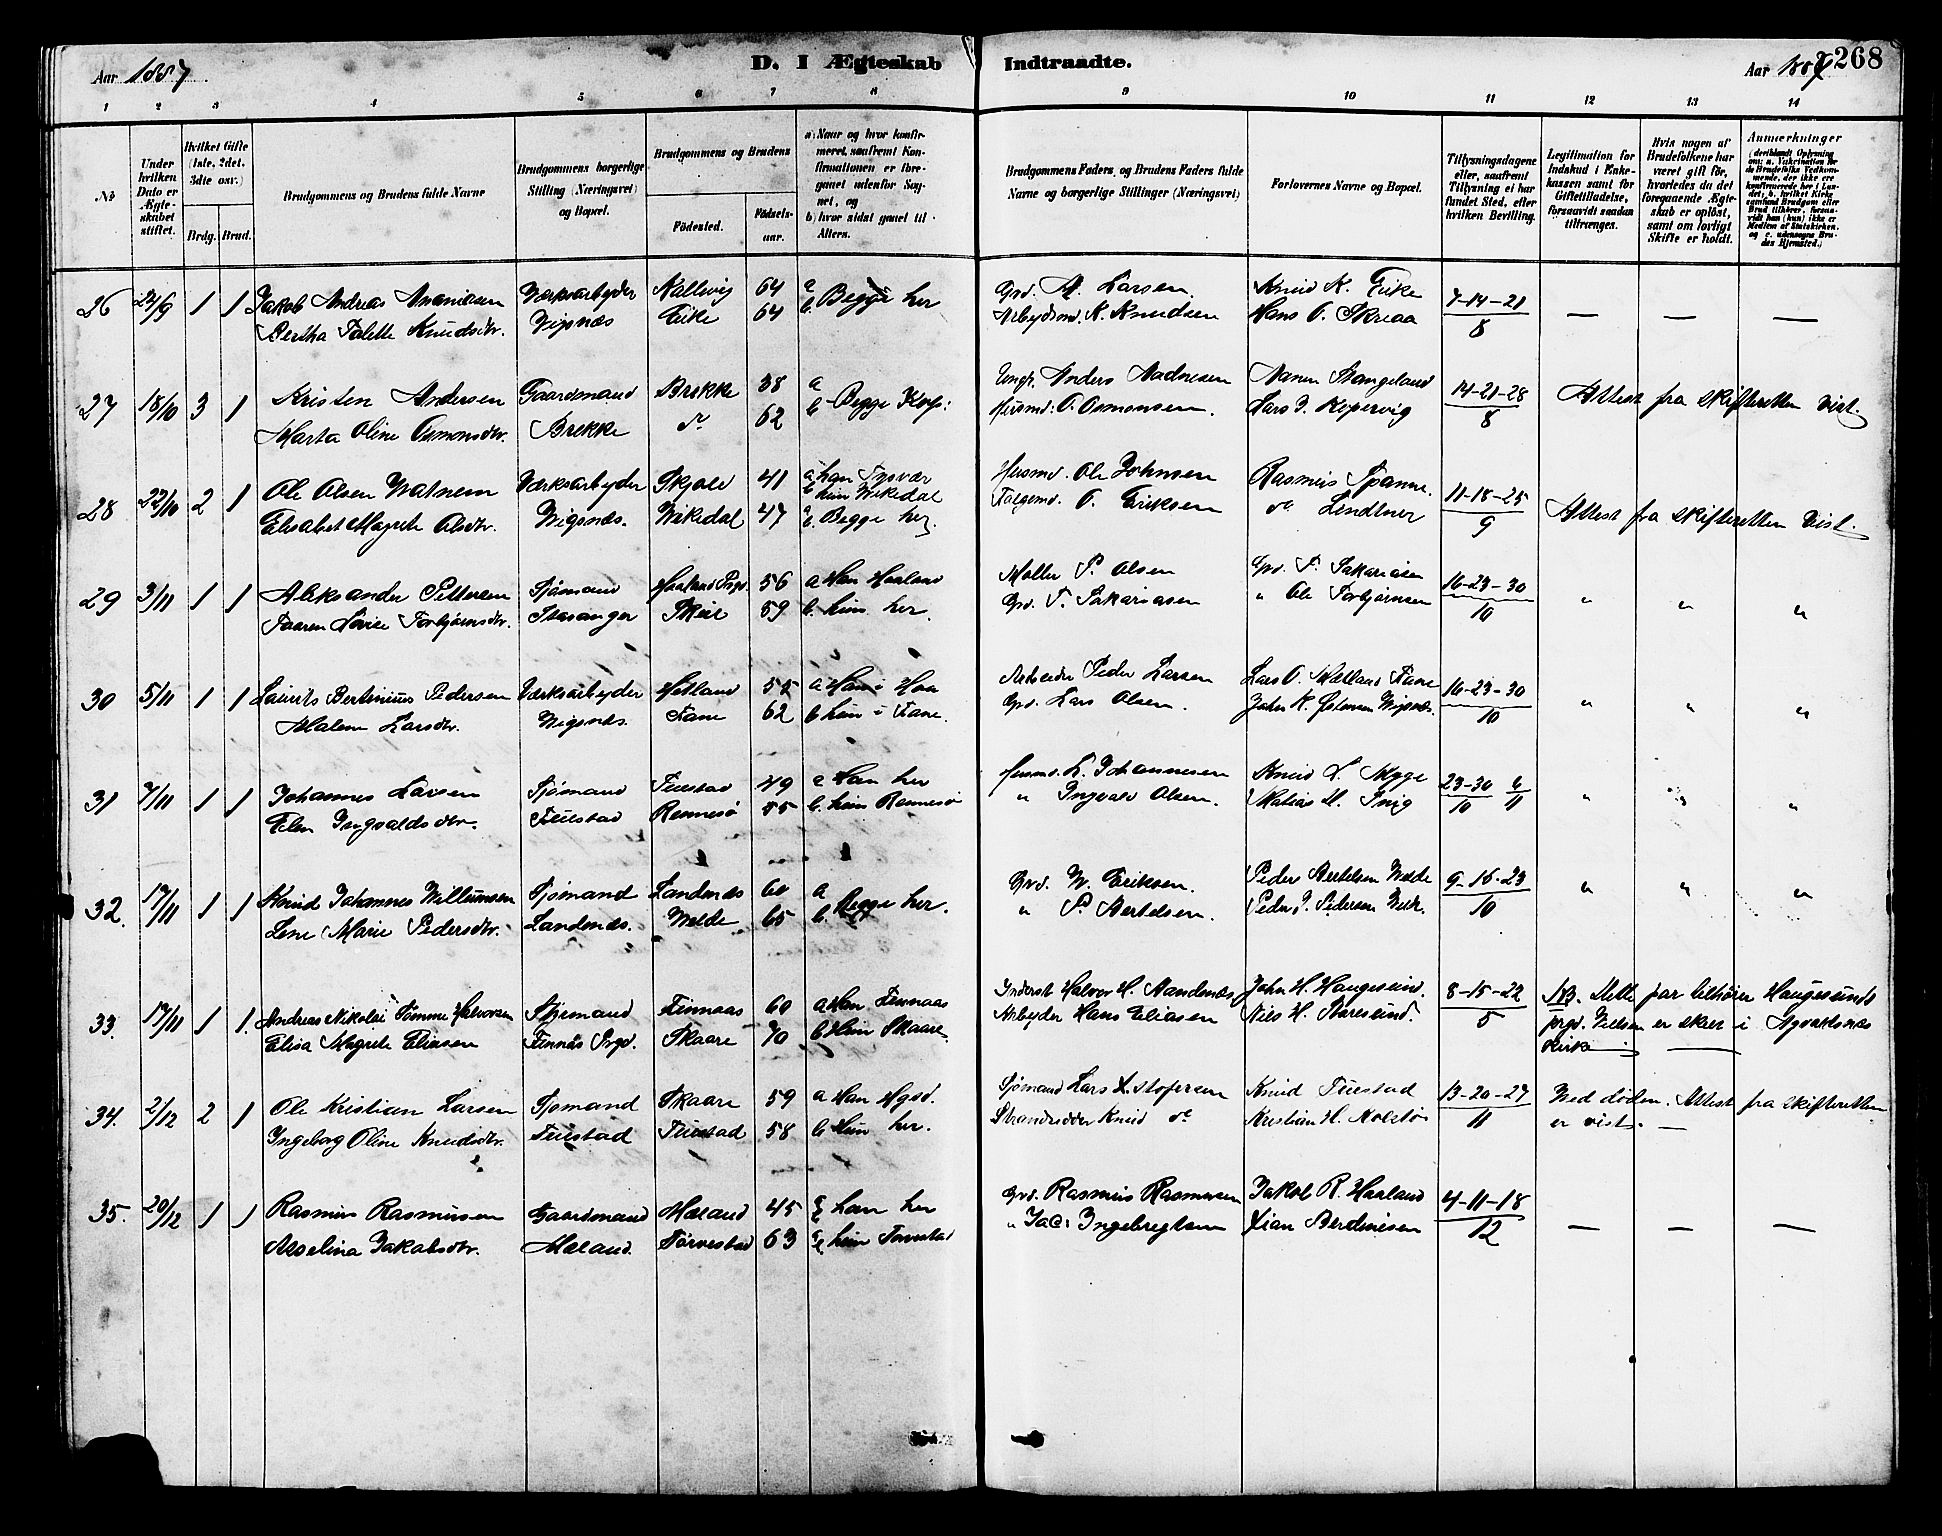 Aar 1887
D. I Ægteskab
Indtraadte.
Aar 1887
268
1 2 3 4 5 6 7 8 9 10 11 12 13 14
No
Under hvilken Dato er Ægteskabet stiftet.
Hvilket Gifte (1ste, 2det, 3die osv.)
Brdg. Brud.
Brudgommens og Brudens fulde Navne
Brudgommens borgerlige Stilling (Næringsvei) og Bopæl.
Brudgommens og Brudens
Födested.
Födselsaar.
a) Naar og hvor konfirmeret, saafremt Konfirmationen er foregaaet udenfor Sognet, og
b) hvor sidst gaaet til Alters.
Brudgommens Faders, og Brudens Faders fulde Navne og borgerlige Stillinger (Næringsvei)
Forlovernes Navne og Bopæl.
Tillysningsdagene eller, saafremt Tillysning ei har fundet Sted, efter hvilken Bevilling.
Legitimation for Indskud i Enkekassen samt for Giftetilladelse, forsaavidt saadan tiltrænges.
Hvis nogen af Brudefolkene har været gift för, hvorledes da det foregaaende Ægteskab er oplöst, samt om lovligt Skifte er holdt.
Anmærkninger
26 24/9 1 1 Jakob Andreas Ananiasen Værksarbeyder Nallevig 64 a Begge her Grd. A. Larsen Knud K. Eike 7-14-21
Bertha Talette Knudsdtr. Vigsnæs Eike 64 b Arbeydsmd. K. Knudsen Hans O. Skreaa 8 — — —
27 18/10 3 1 Kristen Andersen Gaardmand Brekke 38 a Begge Kop: Ungk. Anders Aadnesen Nanen Stangeland 14-21-28 Attest fra skifteretten vist.
Marta Oline Osmonsdtr. Brekke do 62 b Husmd. O. Osmonsen. Lars J. Kopervig 8
28 22/10 2 1 Ole Olsen Watnem Værksarbeyder Skjole 41 a han Tysvær Husmd. Ole Johnsen Rasmus Spanne. 11-18-25
b hun Wikedal
Elisabet Magrete Olsdtr. Wigsnæs. Wikedal 47 Begge her. O. Eriksen do Lindtner 9 Attest fra skifteretten vist.
29 3/11 1 1 Aleksander Pettersen Sjømand Haaland Prgd. 56 a Han Haaland Møller P. Olsen Grd. T. Sakariasen 16-23-30
Taaren Lovise Torbjørnsdtr. Stavanger Skeie 59 b hun her. Grd. T. Sakariasen " Ole Torbjørnsen 10 " " "
30 5/11 1 1 Laurits Bertinius Pedersen Værksarbeyder Hetland 55 a Han i Haa Arbeider Peder Larsen Lars O. Mælland Fane 16-23-30
Malene Larsdtr. Wigsnæs. Fane 62 b hun i Fane. Grd. Lars Olsen. John K. Østensen Wigsnæs. 10 " " "
31 7/11 1 1 Johannes Larsen Sjømand Tuestad 49 a Han her Husmd. L. Johannesen Knud L. Mygge 23-30 6
Elen Ingvaldsdtr. Tuestad Rennesø 55 b. hun Rennesø " Ingvald Olsen. Matias M. Snig 10 11 " " "
32. 17/11 1 1 Knud Johannes Willumsen Sjømand Landenæs 60 a Begge her. Grd. W. Eriksen. Peder Bertelsen Welde 9-16-23
Lene Marie Pedersdtr. Landenæs. Welde 65 b. " P. Bertelsen. Peder J. Pedersen Weld. 10 " " "
33. 17/11 1 1. Andreas Nikolai Tømme Halvorsen Sjømand Finnaas 60 a Han Finnaas Inderst Halvor H. Sandenæs John H. Haugesund. 8-15-22 NB. Dette par tilhører Haugesunds
Elisa Magrete Eliasen Finnås Prgd. Skaare 70 b Hun Skaare Arbeyder Hans Eliasen Nils H. Storesund. 5 prgd. Vielsen er skeet i Avaldsnæs
Kirke
34. 2/12 2 1 Ole Kristian Larsen Sjømand Skaare 59 a Han Hgsd. Sjømand Lars Kristofersen Knud Tuestad 13-20-27 Ved døden. Attest fra skifteretten
Ingeborg Oline Knudsdtr. Tuestad Tuestad 58 b Hun her. Strandsidder Knud do Kristian H. Nolstø 11 er vist. —
35. 20/12 1 1 Rasmus Rasmussen Gaardmand Mæland 45 han her Grd. Rasmus Rasmussen Jakob R. Haaland 4-11-18
Aselina Jakobsdtr. Mæland. Torvestad 63 hun Torvestad " Jac: Ingebregtsen Xian Berdinesen 12 — — —